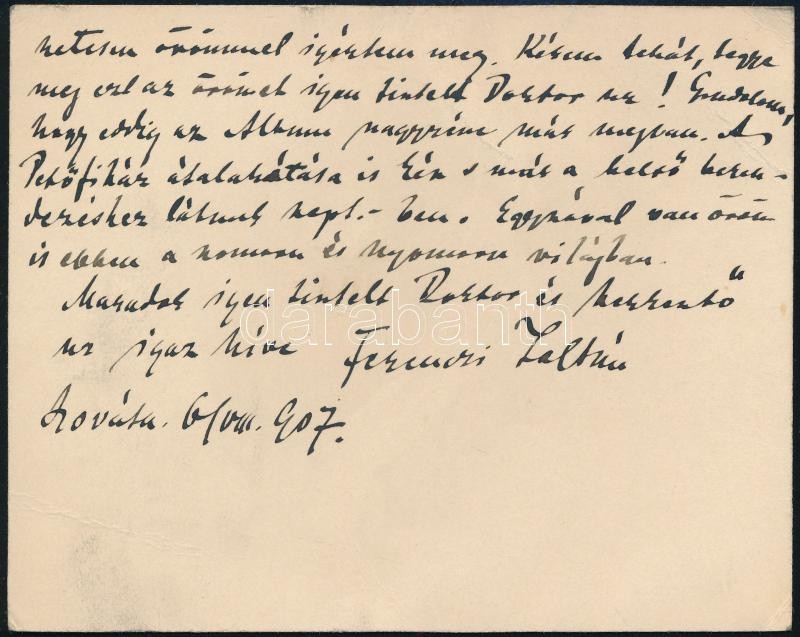 netesen örömmel igértem meg. Kérem tehát, tegye
meg ezt az örömet igen tisztelt Doktor ur! Gondolom,
hogy eddig az Album nagyrésze már megvan. A
Petőfiház átalakítása is kész s már a belső beren-
dezéshez látunk sept.-ben. Egyszóval van öröm
is ebben a komor és nyomoru világban.
Maradok igen tisztelt Doktor és szerkesztő
ur igaz híve Ferenczi Zoltán
Szováta. 6/VIII. 907.
darabanth